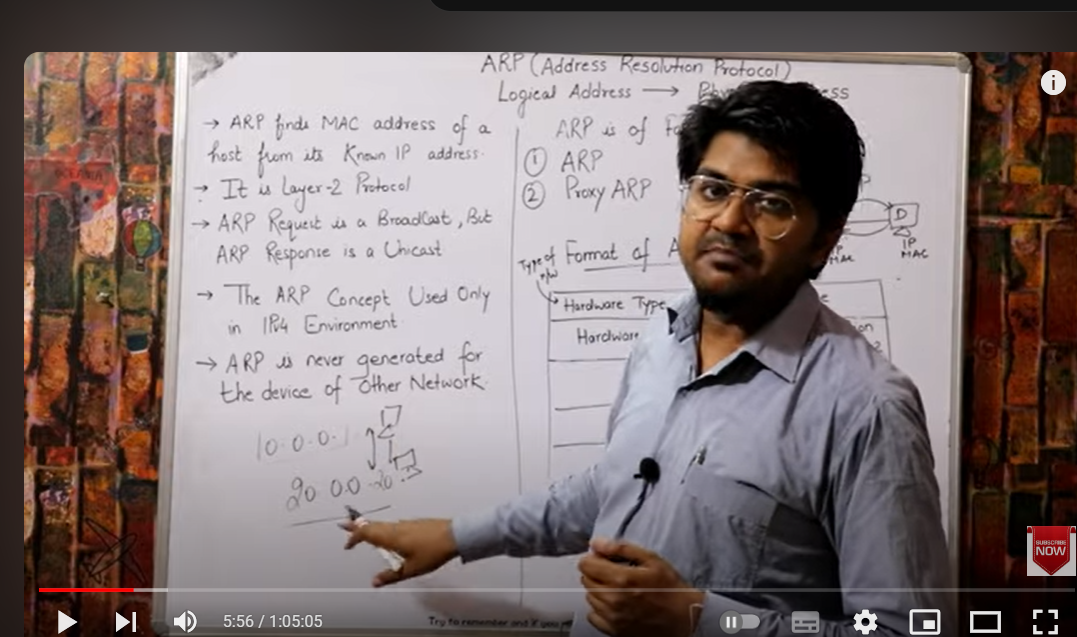 ARP (Address Resolution Protocol)
Logical Address → ess
→ ARP finds MAC address of a
host from its Known IP address.
→ It is Layer-2 Protocol
→ ARP Request is a BroadCast, But
ARP Response is a Unicast
→ The ARP Concept Used Only
in IPv4 Environment.
→ ARP is never generated for
the device of Other Network.
10.0.0.1
20 0.0.20
ARP is of
① ARP
② Proxy ARP
D
IP
MAC
MAC
Type of
n/w
Format of A
Hardware Type
Hardware
OCEANIA
i
SUBSCRIBE
NOW
5:56 / 1:05:05
Try to remember and if you